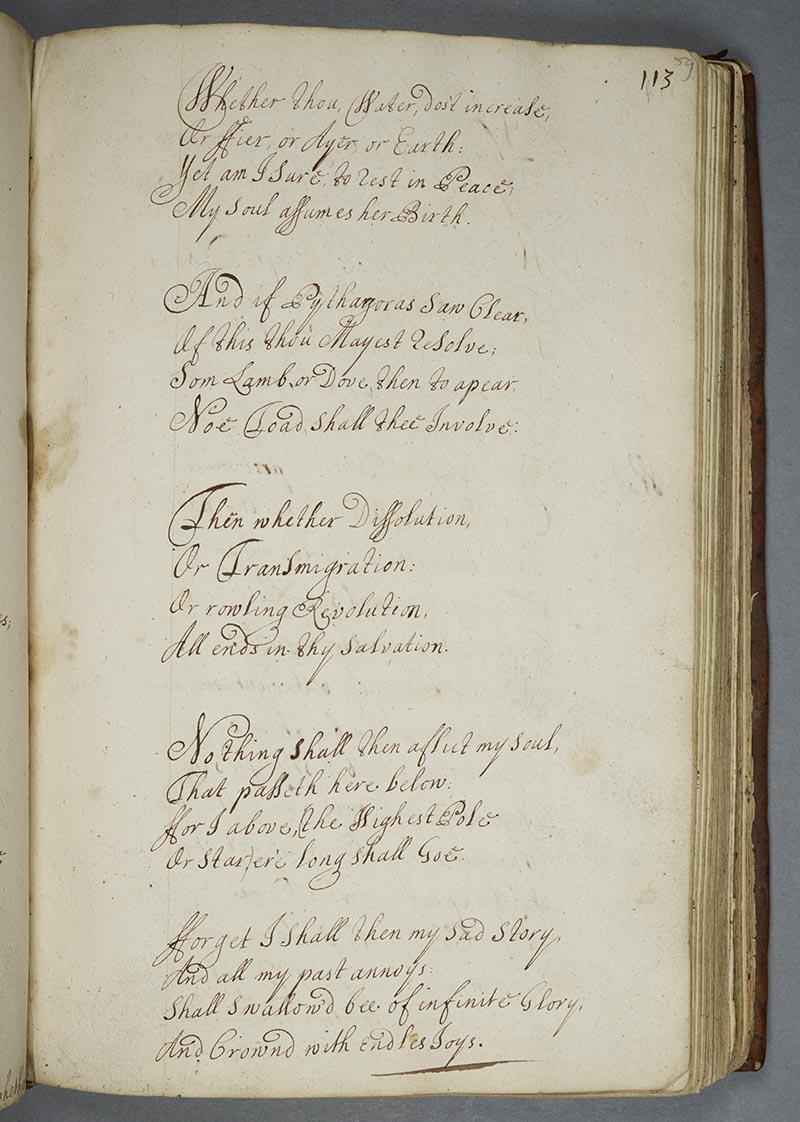 113
89
Whether thou, Water, dost increase,
Or ffier, or Ayer, or Earth:
Yet am I Sure, to rest in Peace,
My Soul assumes her Birth.
And if Pythagoras Saw Clear,
Of this thou Mayest resolve;
Som Lamb, or Dove, then to apear.
Noe Toad shall thee Involve:
Then whether Dissolution,
Or Transmigration:
Or rowling Revolution,
All ends in thy Salvation.
Nothing shall then aflict my Soul,
That passeth here below:
ffor I above, (the Highest Pole
Or Star) ere long shall Goe.
fforget I shall then my Sad Story,
And all my past annoys:
Shall Swallow'd bee of infinite Glory,
And Crownd with Endles Joys.